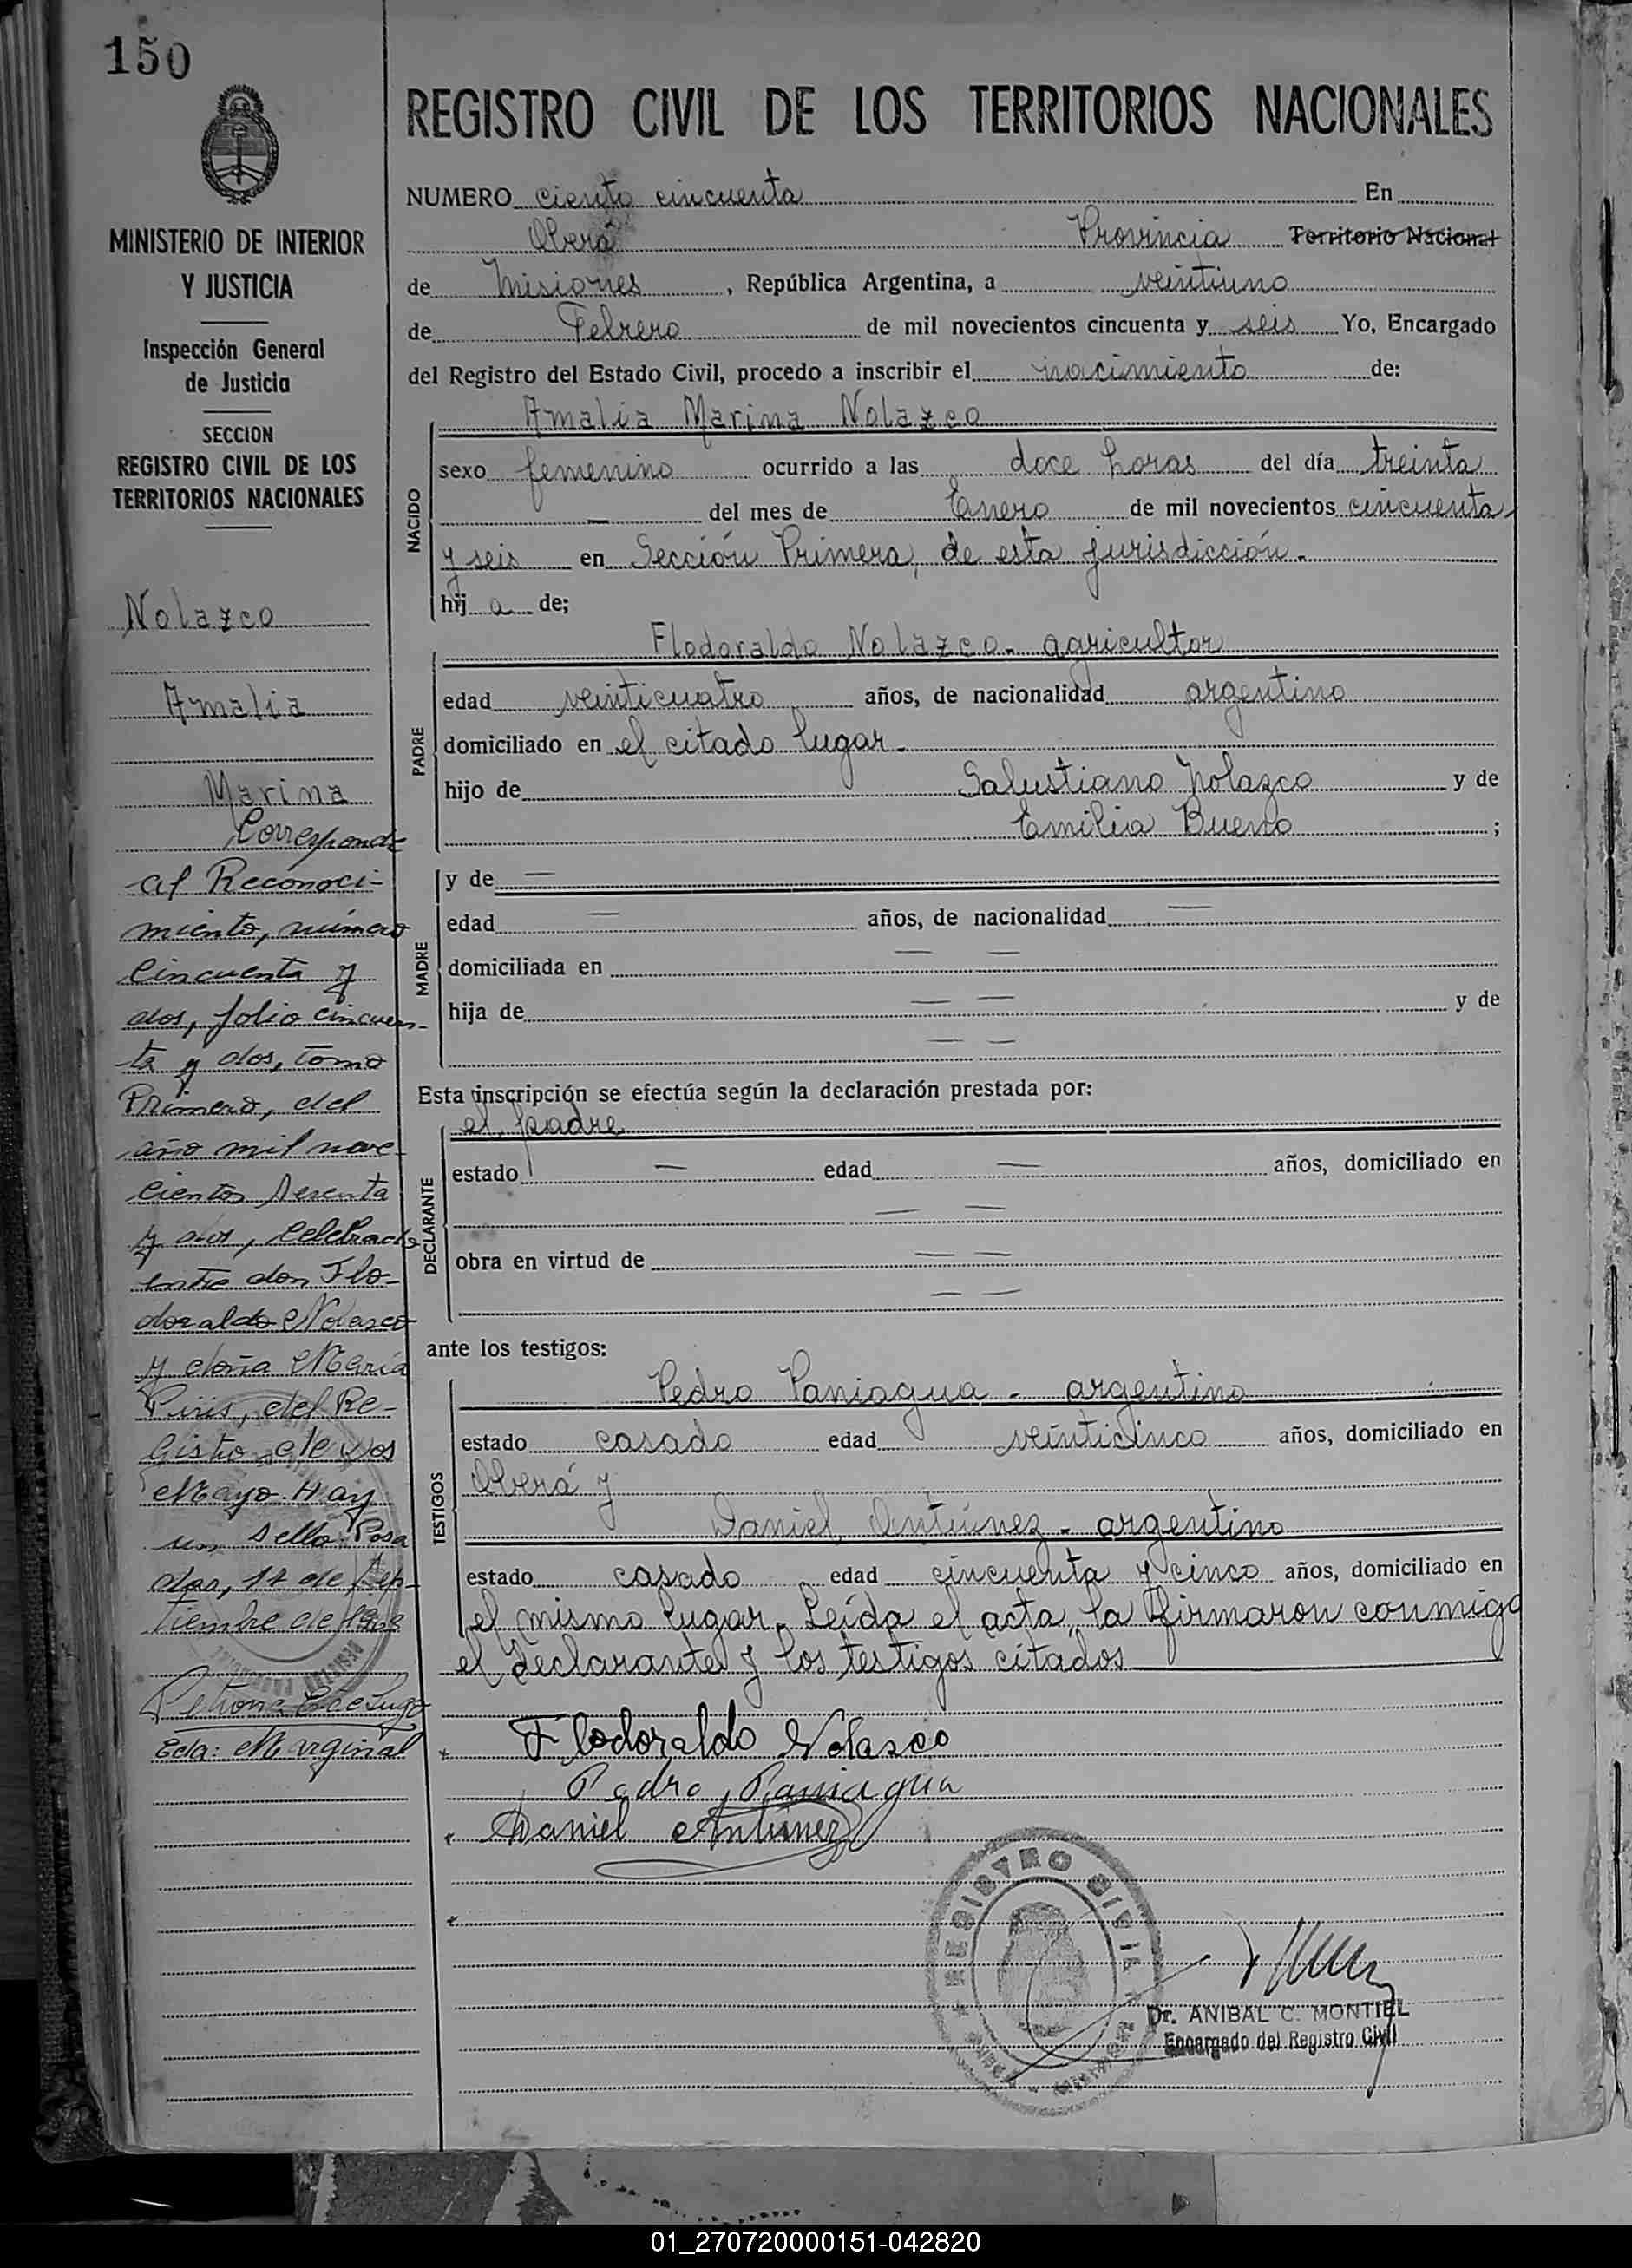 150
MINISTERIO DE INTERIOR
Y JUSTICIA
Inspección General
de Justicia
SECCION
REGISTRO CIVIL DE LOS
TERRITORIOS NACIONALES
Nolazco
Amalia
Marina
Corresponde
al Reconoci-
miento, número
Cincuenta y
dos, folio cincuen-
ta y dos, tomo
Primero, del
año mil nove-
cientos sesenta
y dos, celebrado
entre don Flo-
doraldo Nolasco
y doña María
Piris, del Re-
gistro de Dos
Mayo. Hay
un sello Posa
das, 14 de Sep-
tiembre de
Petrona
Ecda: Marginal
REGISTRO CIVIL DE LOS TERRITORIOS NACIONALES
NUMERO ciento cincuenta En
Oberá Provincia Territorio Nacional
de Misiones, República Argentina, a veintiuno
de Febrero de mil novecientos cincuenta y seis Yo, Encargado
del Registro del Estado Civil, procedo a inscribir el nacimiento de:
NACIDO
Amalia Marina Nolazco
sexo femenino ocurrido a las doce horas del día treinta
— del mes de Enero de mil novecientos cincuenta
y seis en Sección Primera, de esta jurisdicción.-
hij a de;
PADRE
Flodoraldo Nolazco.- agricultor
edad veinticuatro años, de nacionalidad argentino
domiciliado en el citado lugar.-
hijo de Salustiano Nolazco y de
Emilia Bueno ;
MADRE
y de —
edad — años, de nacionalidad —
domiciliada en — —
hija de — — y de
— —
Esta inscripción se efectúa según la declaración prestada por:
DECLARANTE
el padre
estado — edad — años, domiciliado en
— —
obra en virtud de — —
— —
ante los testigos:
TESTIGOS
Pedro Paniagua - argentino
estado casado edad veinticinco años, domiciliado en
Oberá y
Daniel Antúnez - argentino
estado casado edad cincuenta y cinco años, domiciliado en
el mismo lugar. Leída el acta, la firmaron conmigo
el declarante y los testigos citados
Flodoraldo Nolasco
Pedro Paniagua
Daniel Antunez
REGISTRO CIVIL
Dr. ANIBAL C. MONTIEL
Encargado del Registro Civil
01_270720000151-042820